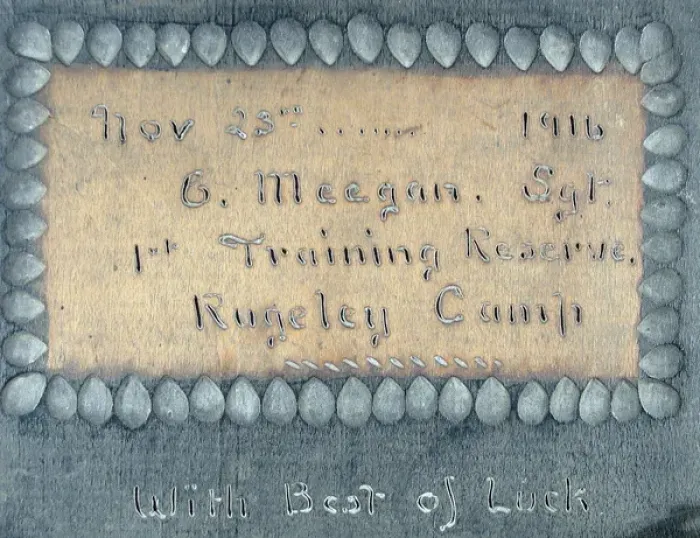 Nov 23rd ........ 1916
G. Meegan. Sgt.
1st Training Reserve.
Rugeley Camp
With Best of Luck